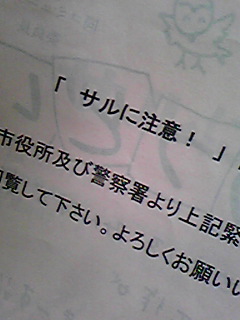 「 サルに注意！ 」
市役所及び警察署より上記緊
覧して下さい。よろしくお願いい